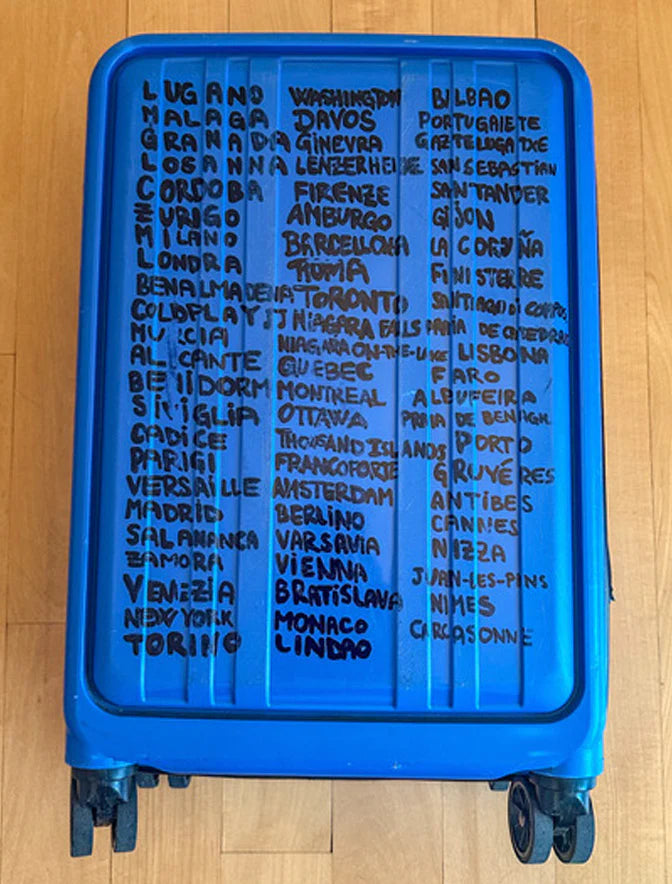 LUGANO
MALAGA
GRANADA
LOSANNA
CORDOBA
ZURIGO
MILANO
LONDRA
BENALMADENA
COLDPLAY
MURCIA
ALICANTE
BENIDORM
SIVIGLIA
CADICE
PARIGI
VERSAILLE
MADRID
SALAMANCA
ZAMORA
VENEZIA
NEW YORK
TORINO
WASHINGTON
DAVOS
GINEVRA
LENZERHEIDE
FIRENZE
AMBURGO
BARCELLONA
ROMA
TORONTO
NIAGARA FALLS
NIAGARA ON-THE-LAKE
QUEBEC
MONTREAL
OTTAWA
THOUSAND ISLANDS
FRANCOFORTE
AMSTERDAM
BERLINO
VARSAVIA
VIENNA
BRATISLAVA
MONACO
LINDAO
BILBAO
PORTUGALETE
GAZTELUGATXE
SAN SEBASTIAN
SANTANDER
GIJON
LA CORUÑA
FINISTERRE
SANTIAGO DI COMPOS
DE
LISBONA
FARO
ALBUFEIRA
PRAIA DE BENAGIL
PORTO
GRUVÉRES
ANTIBES
CANNES
NIZZA
JUAN-LES-PINS
NIMES
CARCASONNE